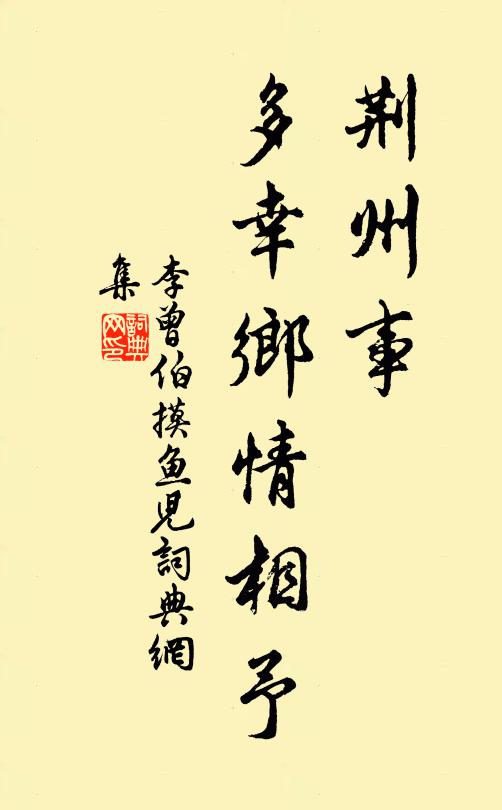 荆州事
多幸鄉情相予
李曾伯摸魚児詞典網
集
詞典
网印